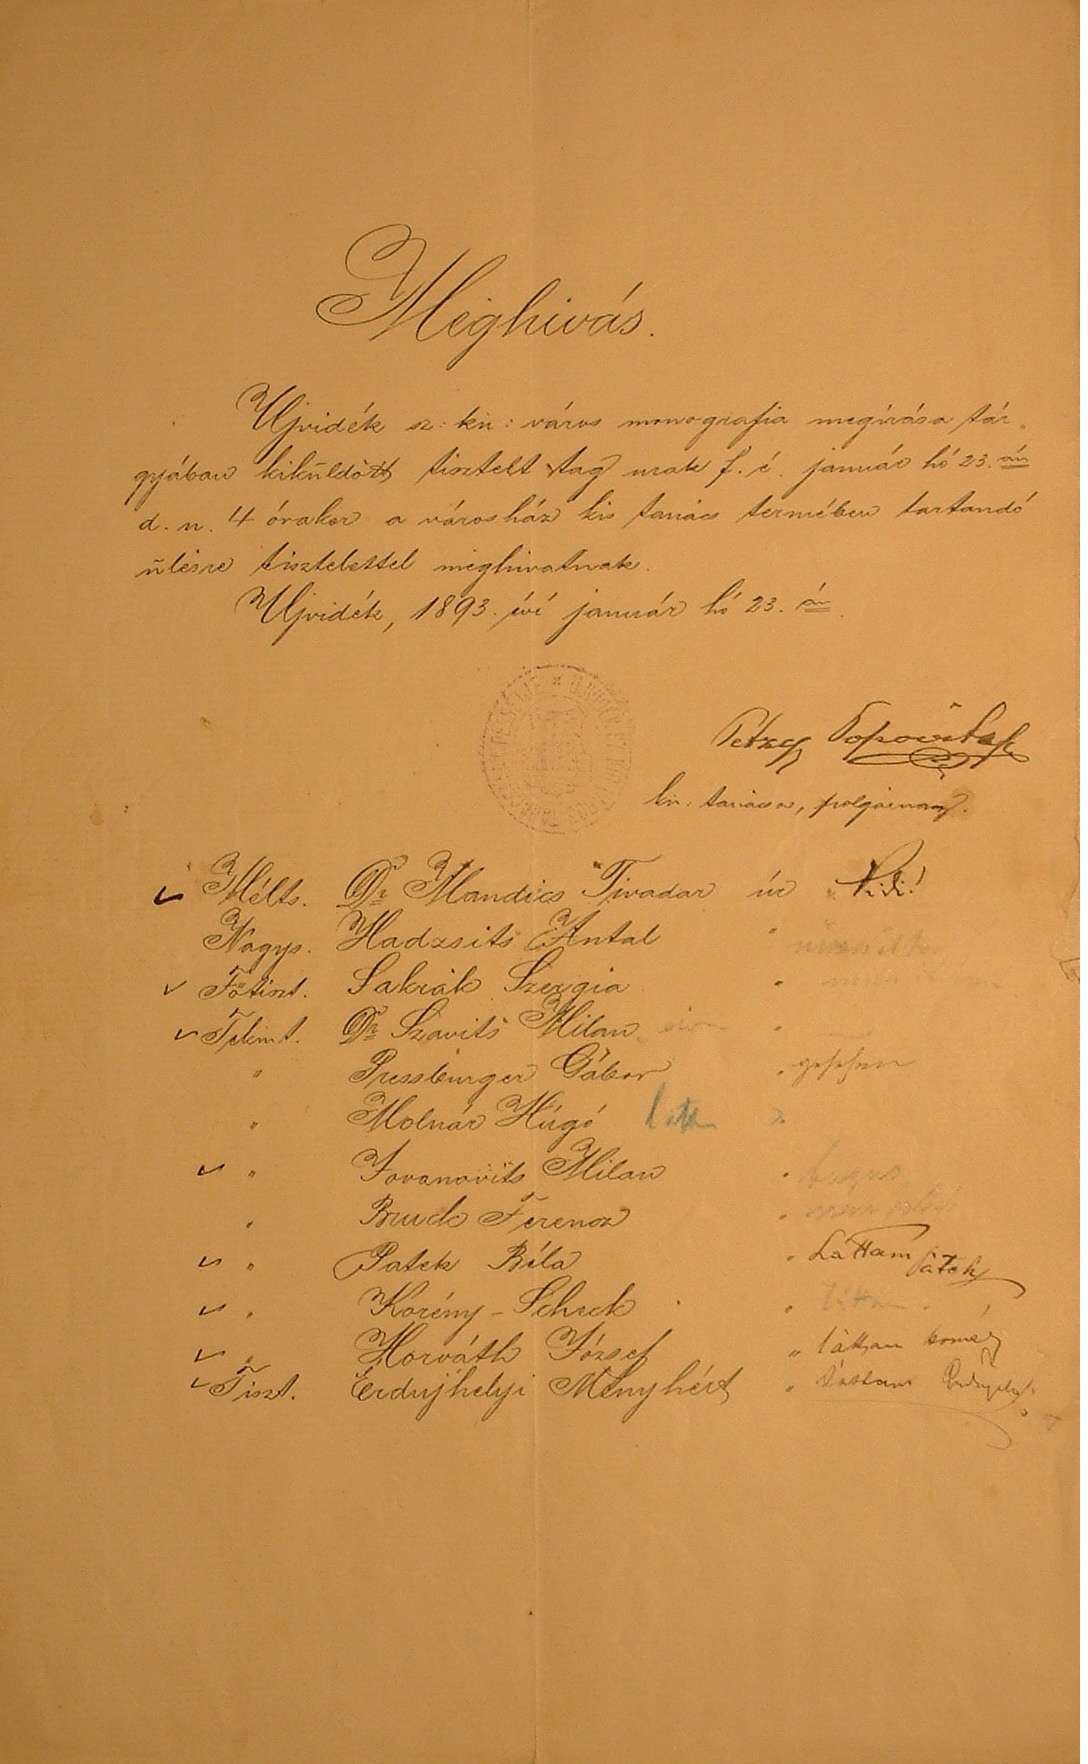 Meghivás.
Ujvidék sz: kir: város monografia megirása tár-
gyában kiküldött tisztelt tag urak f. é. január hó 23.án
d. u. 4 órakor a városház kis tanács termében tartandó
ülésre tisztelettel meghivatnak.
Ujvidék, 1893. évi január hó 23.án
Popovits
kir. tanácsos, polgármest.
Mélts. Dr Mandics Tivadar úr Vidi!
Nagys. Hadzsits Antal "
Főtiszt. Sakrák Szergia "
Tekint. Dr Szavits Milan "
" Pressburger Gábor " gesehen
" Molnár Húgó "
" Jovanovits Milan "
" Bruck Ferencz "
" Patek Béla " Láttam Patek
" Korény-Scheck " láttam
" Horváth József " láttam
Tiszt. Érdujhelyi Menyhért " láttam Érdujhelyi